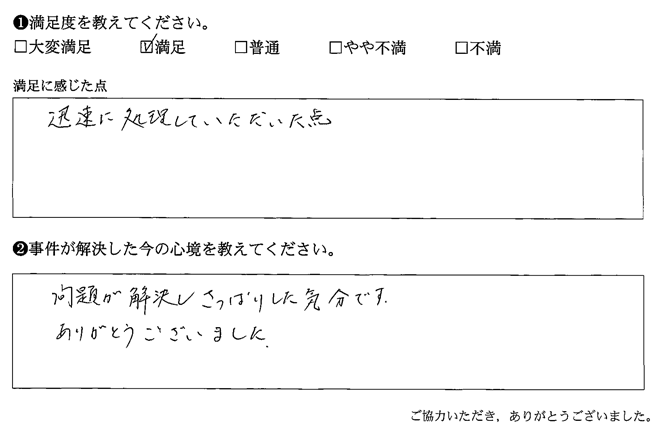 ❶満足度を教えてください。
□大変満足 ☑満足 □普通 □やや不満 □不満
満足に感じた点
迅速に処理していただいた点
❷事件が解決した今の心境を教えてください。
問題が解決しさっぱりした気分です.
ありがとうございました.
ご協力いただき，ありがとうございました。